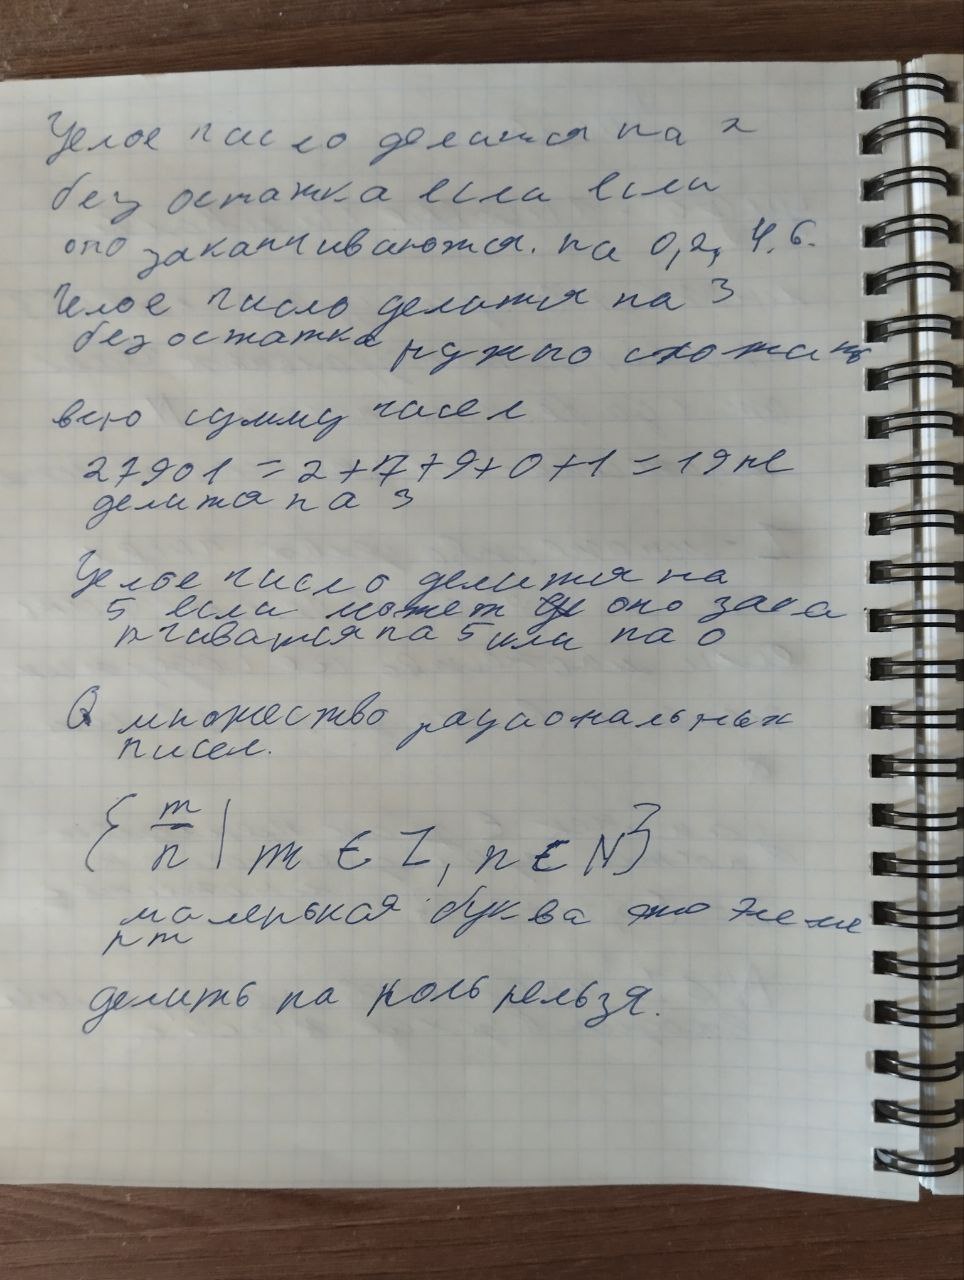 Целое число делится на 2
без остатка если если
оно заканчиваются. на 0, 2, 4, 6.
Целое число делится на 3
без остатка нужно сложать
всю сумму чисел
27901 = 2+7+9+0+1 = 19 не
делится на 3
Целое число делится на
5 если может оно зака
нчиватся на 5 или на 0
Q множество рациональных
чисел.
{m/n | m ∈ Z, n ∈ N}
маленькая буква это элеме
нт
делить на ноль нельзя.